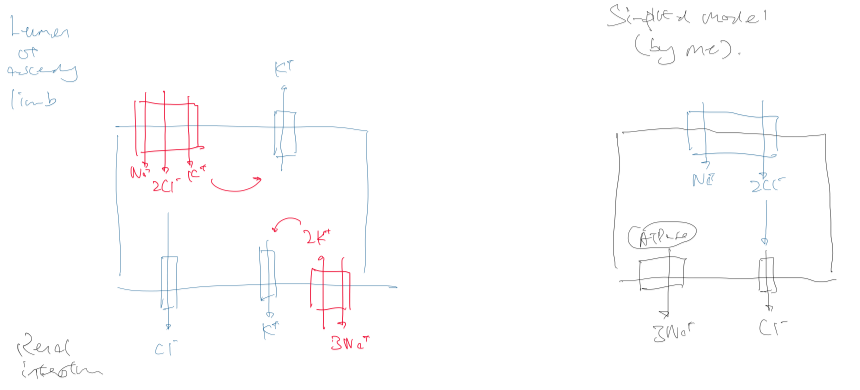 Lumen
of
ascendy
limb
K⁺
Na⁺
2Cl⁻
K⁺
2K⁺
Cl⁻
K⁺
3Na⁺
Renal
Simplified model
(by me).
Na⁺
2Cl⁻
ATPase
3Na⁺
Cl⁻